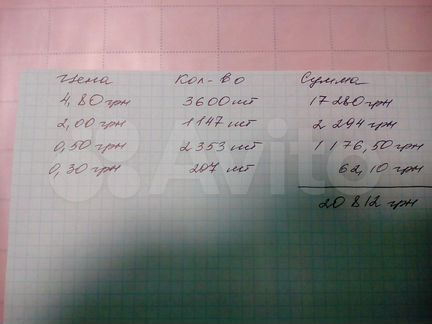 Цена Кол-во Сумма
4,80 грн 3600 шт 17 280 грн
2,00 грн 1147 шт 2 294 грн
0,50 грн 2353 шт 1 176,50 грн
0,30 грн 207 шт 62,10 грн
20 812 грн
Avito